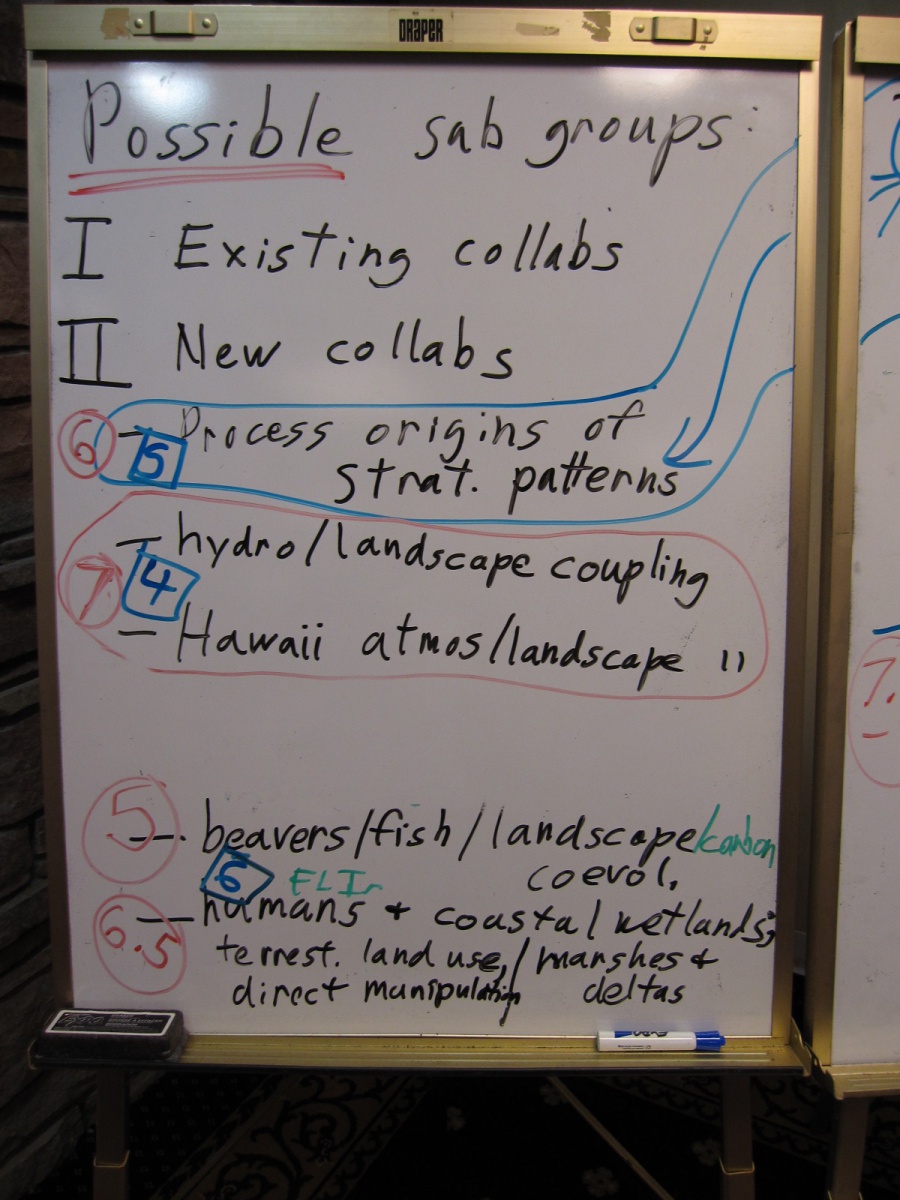 DRAPER
Possible sub groups:
I Existing collabs
II New collabs
6 — Process origins of
5 strat. patterns
— hydro/landscape coupling
7 4
— Hawaii atmos/landscape "
5 — beavers/fish/landscape/carbon
6 ELI coevol.
6.5 — humans + coastal wetlands;
terrest. land use,/marshes +
direct manipulation deltas
EXPO
7.